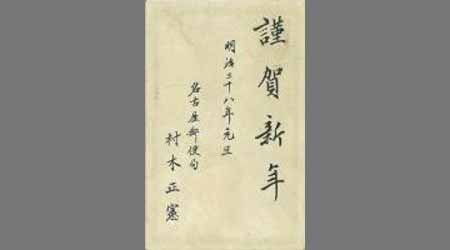 謹賀新年
明治三十八年元旦
名古屋郵便局
村木正憲